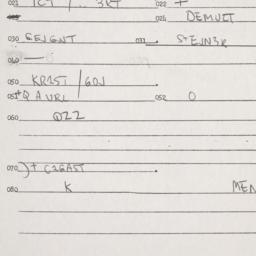 021 ICT / .. 3RT 022 +
024 DEMUIT
030 SEJGNT 031 STEJN3R
040 —
050 KR1ST / GOJ
051 + Q AURL 052 O
060 Q22
070 ) + C2GAST
080 K MEN